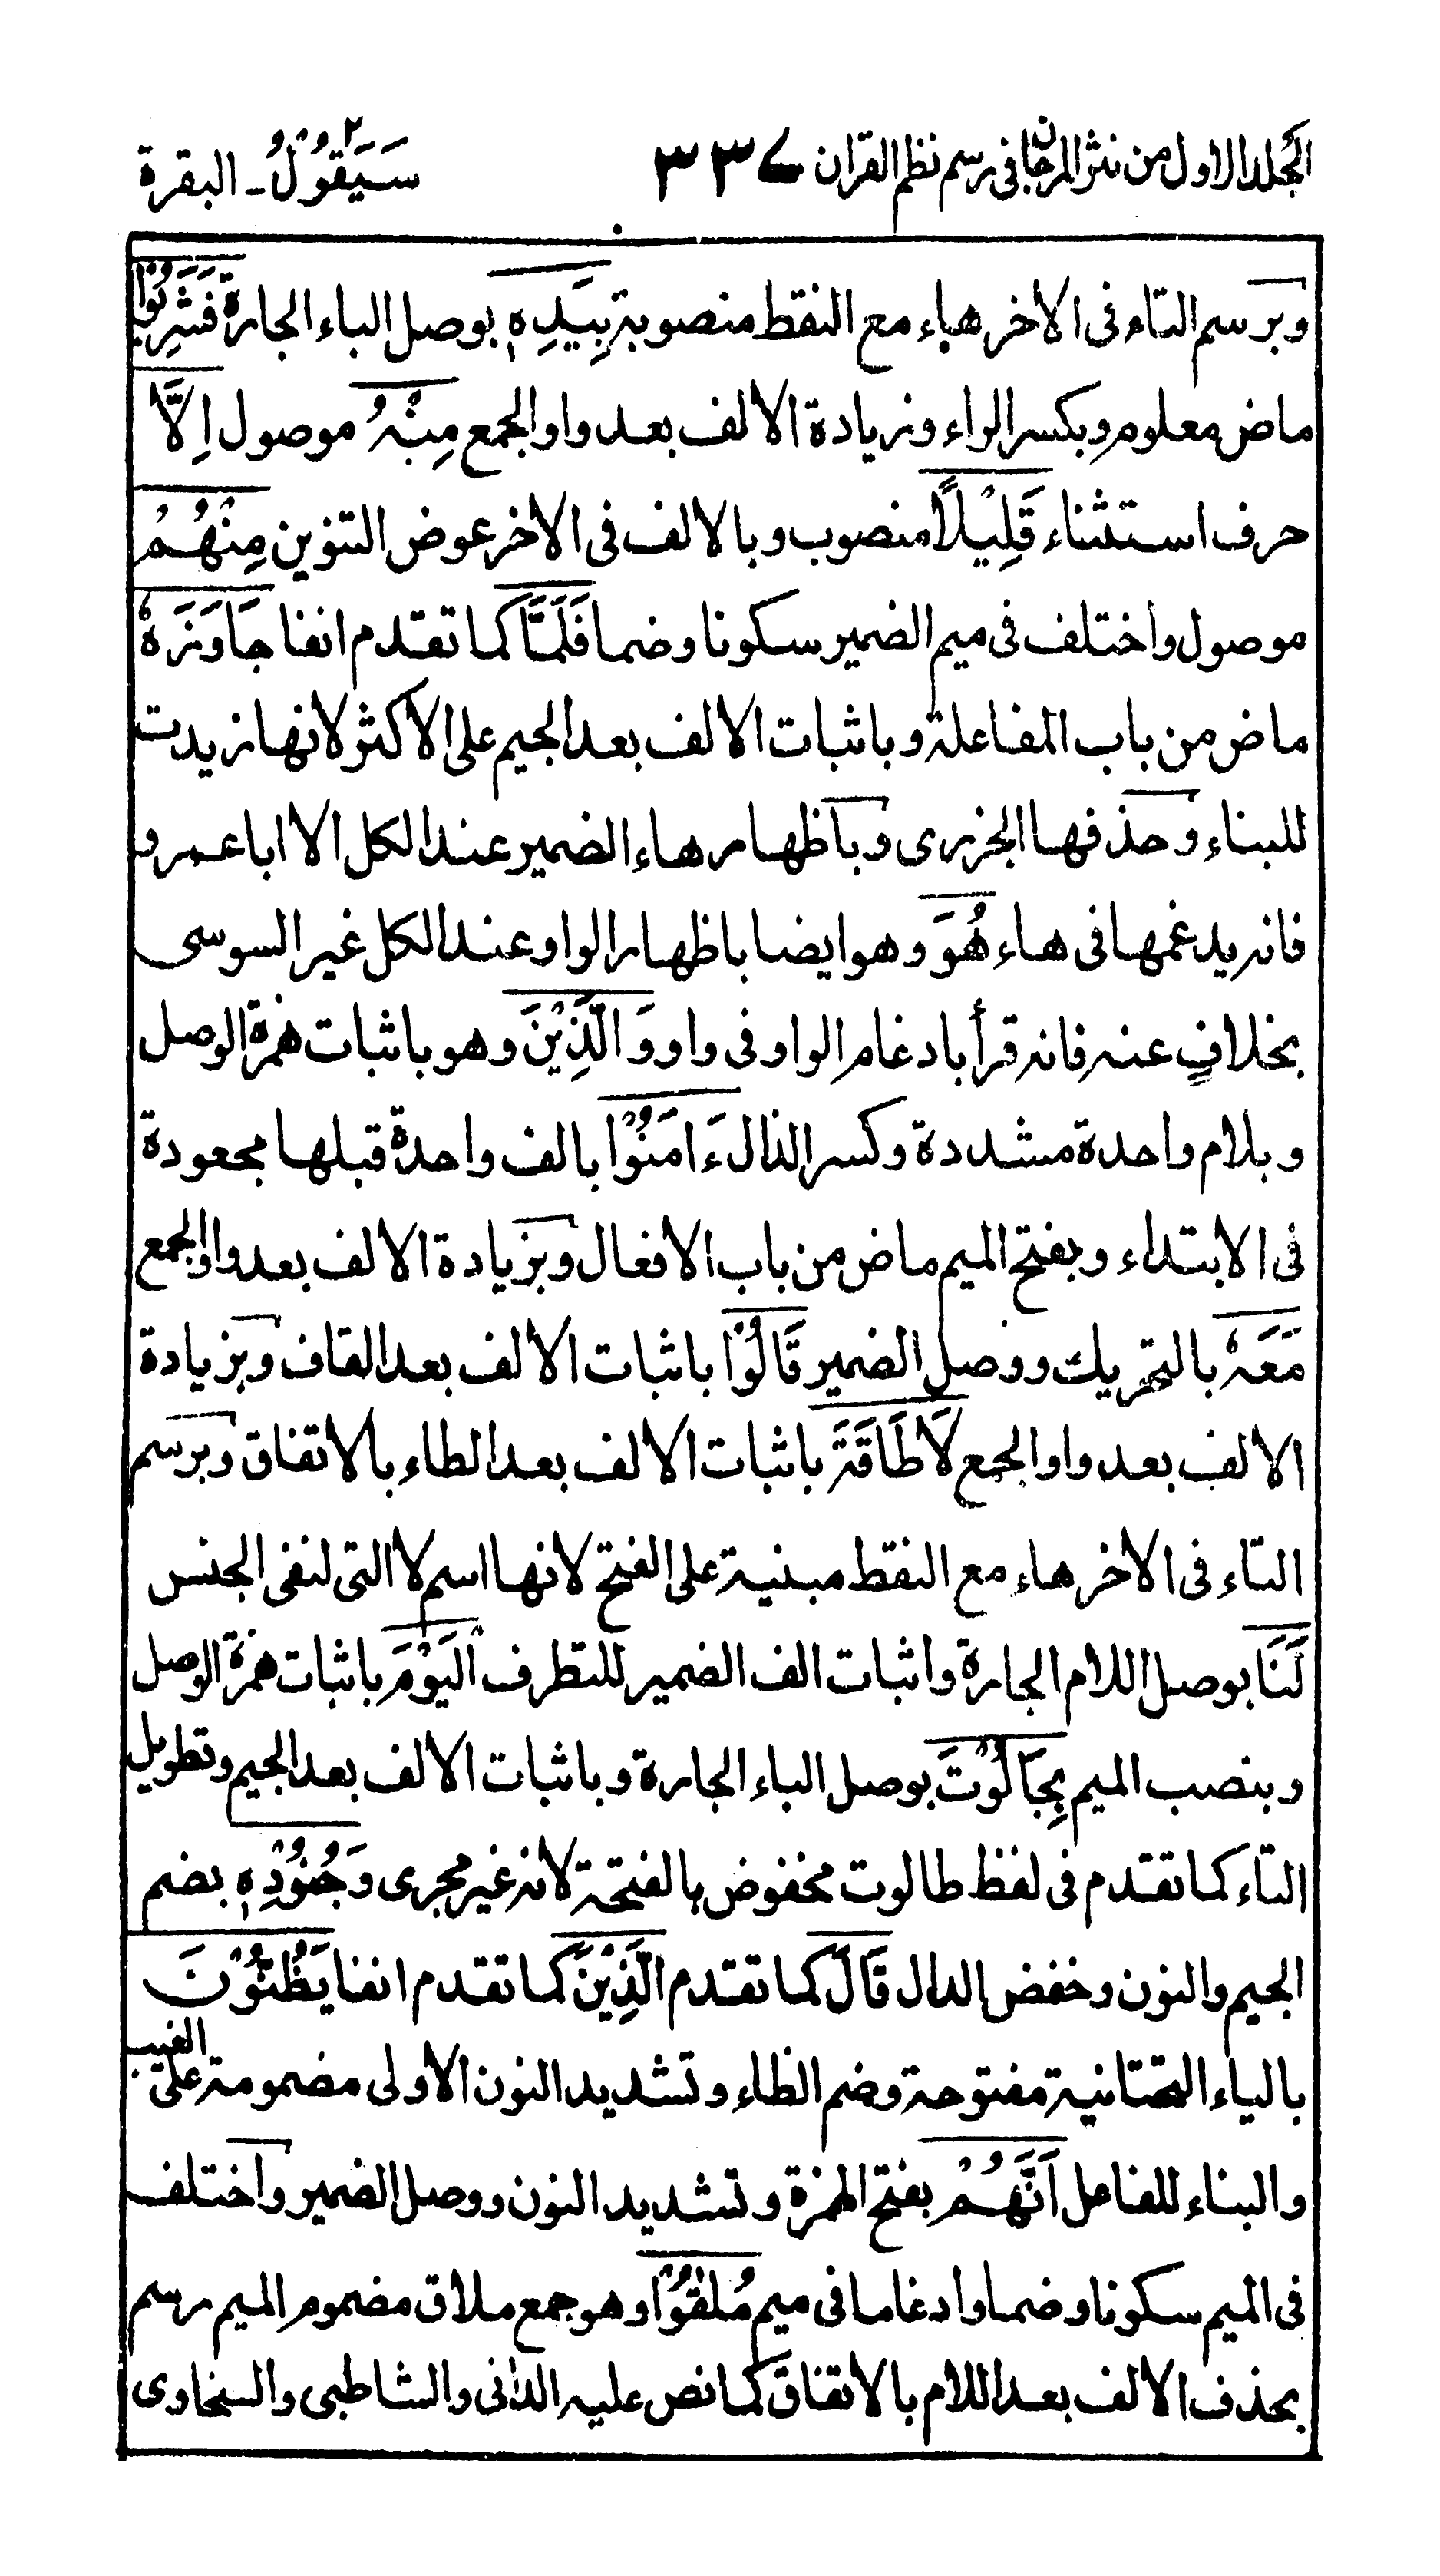 المجلد الاول من نثر المرجان فى رسم نظم القران ٣٣٧ سَيَقُوْلُ ٢ ـ البقرة
وبرسم التاء فى الاخر هاء مع النقط منصوبة بِيَدِهٖ بوصل الباء الجارة فَشَرِبُوْا
ماض معلوم وبكسر الراء وزيادة الالف بعد واو الجمع مِنْهُ موصول اِلَّا
حرف استثناء قَلِيْلًا منصوب وبالالف فى الاخر عوض التنوين مِنْهُمْ
موصول واختلف فى ميم الضمير سكونا وضما فَلَمَّا كما تقدم انفا جَاوَزَهٗ
ماض من باب المفاعلة وباثبات الالف بعد الجيم على الاكثر لانها زيدت
للبناء وحذفها الجزرى وباظهار هاء الضمير عند الكل الا ابا عمرو
فانه يدغمها فى هاء هُوَ وهو ايضا باظهار الواو عند الكل غير السوسى
بخلافٍ عنه فانه قرأ بادغام الواو فى واو وَالَّذِيْنَ وهو باثبات همزة الوصل
وبلام واحدة مشددة وكسر الذال ءَامَنُوْا بالف واحدة قبلها مجعودة
فى الابتداء وبفتح الميم ماض من باب الافعال وبزيادة الالف بعد واو الجمع
مَعَهٗ بالتحريك ووصل الضمير قَالُوْا باثبات الالف بعد القاف وبزيادة
الالف بعد واو الجمع لَا طَاقَةَ باثبات الالف بعد الطاء بالاتفاق وبرسم
التاء فى الاخر هاء مع النقط مبنية على الفتح لانها اسم لا التى لنفى الجنس
لَنَا بوصل اللام الجارة واثبات الف الضمير للتطرف اَلْيَوْمَ باثبات همزة الوصل
وبنصب الميم بِجَالُوْتَ بوصل الباء الجارة وباثبات الالف بعد الجيم وتطويل
التاء كما تقدم فى لفظ طالوت مخفوض بالفتحة لانه غير مجرى وَجُنُوْدِهٖ بضم
الجيم والنون وخفض الدال قَالَ كما تقدم الَّذِيْنَ كما تقدم انفا يَظُنُّوْنَ
بالياء التحتانية مفتوحة وضم الظاء وتشديد النون الاولى مضمومة على الغيب
والبناء للفاعل اَنَّهُمْ بفتح الهمزة وتشديد النون ووصل الضمير واختلف
فى الميم سكونا وضما وادغاما فى ميم مُلٰقُوْا وهو جمع ملاق مضموم الميم رسم
بحذف الالف بعد اللام بالاتفاق كما نص عليه الدانى والشاطبى والسخاوى